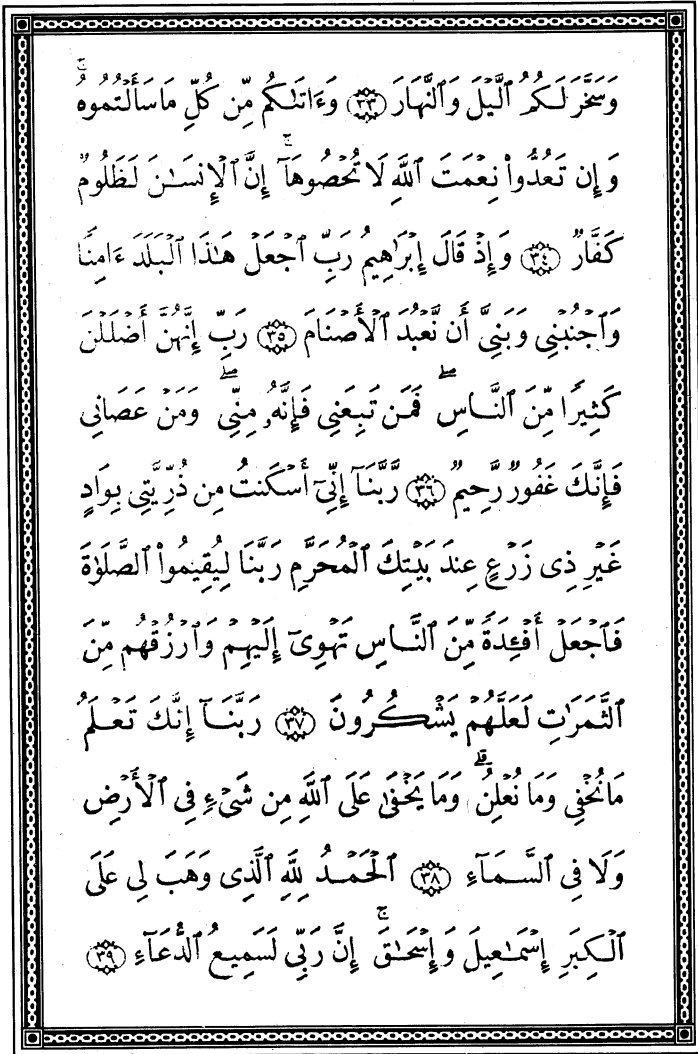 وَسَخَّرَ لَكُمُ ٱلَّيْلَ وَٱلنَّهَارَ ٣٣ وَءَاتَىٰكُم مِّن كُلِّ مَا سَأَلْتُمُوهُ ۚ
وَإِن تَعُدُّوا۟ نِعْمَتَ ٱللَّهِ لَا تُحْصُوهَآ ۗ إِنَّ ٱلْإِنسَٰنَ لَظَلُومٌ
كَفَّارٌ ٣٤ وَإِذْ قَالَ إِبْرَٰهِيمُ رَبِّ ٱجْعَلْ هَٰذَا ٱلْبَلَدَ ءَامِنًا
وَٱجْنُبْنِى وَبَنِىَّ أَن نَّعْبُدَ ٱلْأَصْنَامَ ٣٥ رَبِّ إِنَّهُنَّ أَضْلَلْنَ
كَثِيرًا مِّنَ ٱلنَّاسِ ۖ فَمَن تَبِعَنِى فَإِنَّهُۥ مِنِّى ۖ وَمَنْ عَصَانِى
فَإِنَّكَ غَفُورٌ رَّحِيمٌ ٣٦ رَّبَّنَآ إِنِّىٓ أَسْكَنتُ مِن ذُرِّيَّتِى بِوَادٍ
غَيْرِ ذِى زَرْعٍ عِندَ بَيْتِكَ ٱلْمُحَرَّمِ رَبَّنَا لِيُقِيمُوا۟ ٱلصَّلَوٰةَ
فَٱجْعَلْ أَفْـِٔدَةً مِّنَ ٱلنَّاسِ تَهْوِىٓ إِلَيْهِمْ وَٱرْزُقْهُم مِّنَ
ٱلثَّمَرَٰتِ لَعَلَّهُمْ يَشْكُرُونَ ٣٧ رَبَّنَآ إِنَّكَ تَعْلَمُ
مَا نُخْفِى وَمَا نُعْلِنُ ۗ وَمَا يَخْفَىٰ عَلَى ٱللَّهِ مِن شَىْءٍ فِى ٱلْأَرْضِ
وَلَا فِى ٱلسَّمَآءِ ٣٨ ٱلْحَمْدُ لِلَّهِ ٱلَّذِى وَهَبَ لِى عَلَى
ٱلْكِبَرِ إِسْمَٰعِيلَ وَإِسْحَٰقَ ۚ إِنَّ رَبِّى لَسَمِيعُ ٱلدُّعَآءِ ٣٩